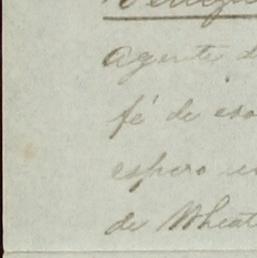 Agente d
fé de eso
espero e
de Wheat